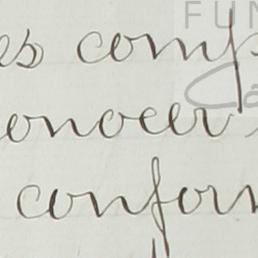 FUN
es comp
onocer
confor